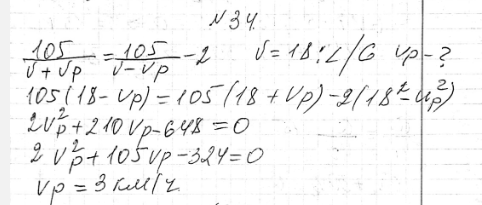 №34.
105/(v+vp) = 105/(v-vp) - 2 v=18 км/ч vp-?
105(18-vp)=105(18+vp)-2(18²-vp²)
2vp²+210vp-648=0
2vp²+105vp-324=0
vp=3км/ч.